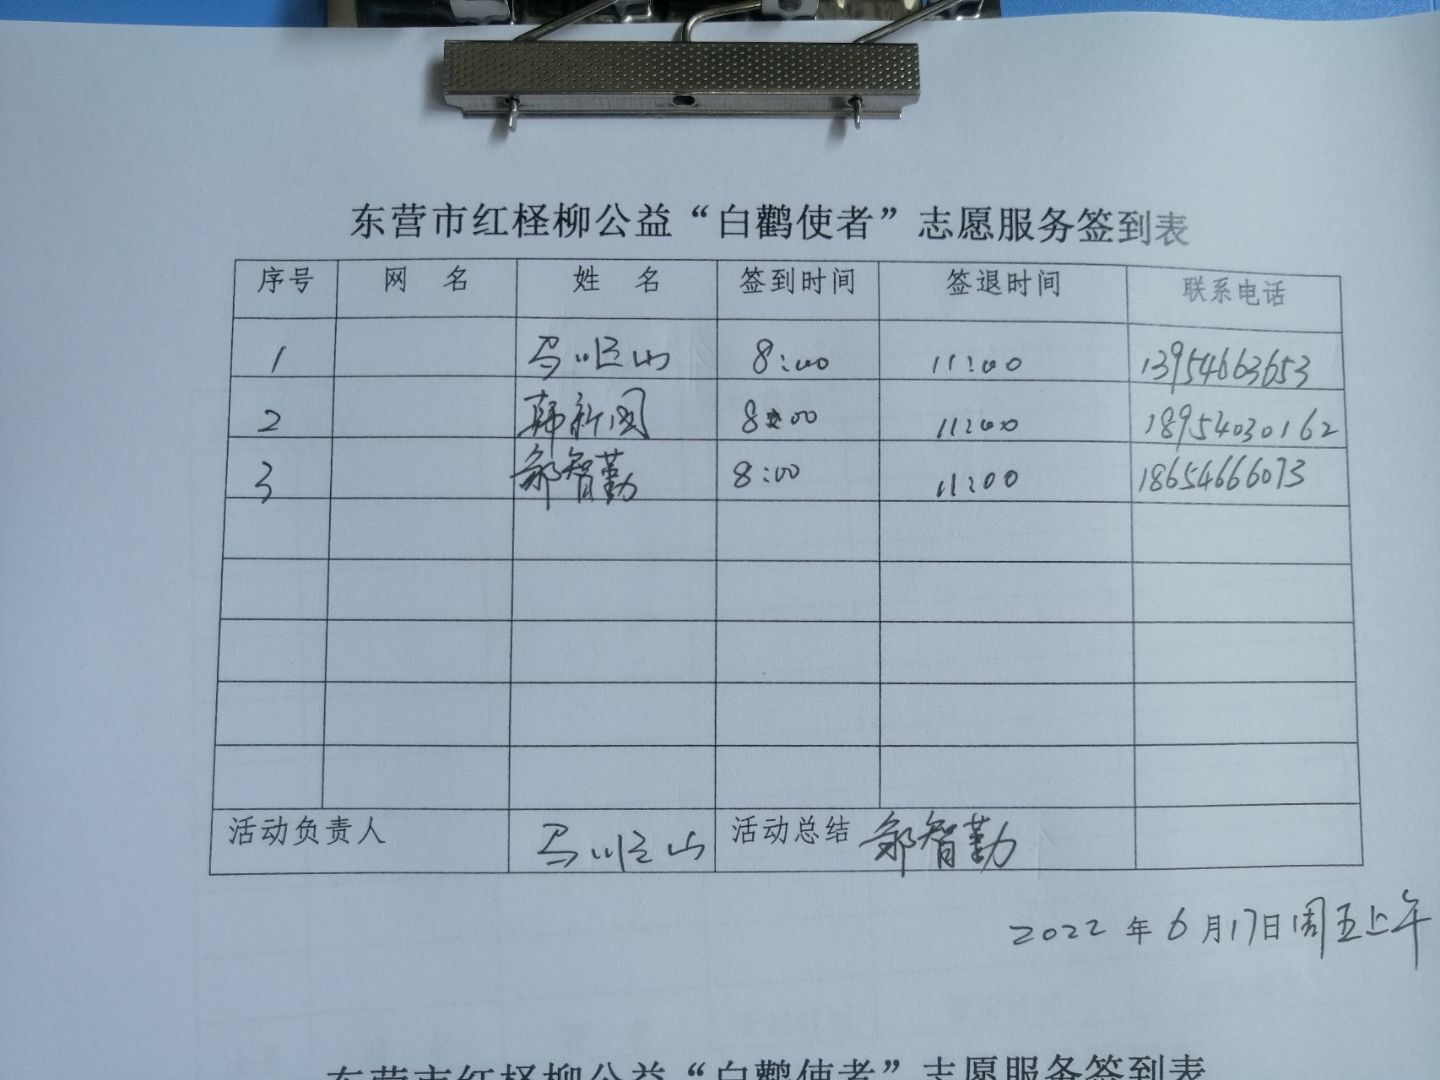 东营市红柽柳公益“白鹳使者”志愿服务签到表
序号 网 名 姓 名 签到时间 签退时间 联系电话
1 马顺山 8:00 11:00 13954663653
2 韩新国 8:00 11:00 18954030162
3 郭智勤 8:00 11:00 18654666073
活动负责人 马顺山 活动总结 郭智勤
2022年6月17日周五上午
东营市红柽柳公益“白鹳使者”志愿服务签到表